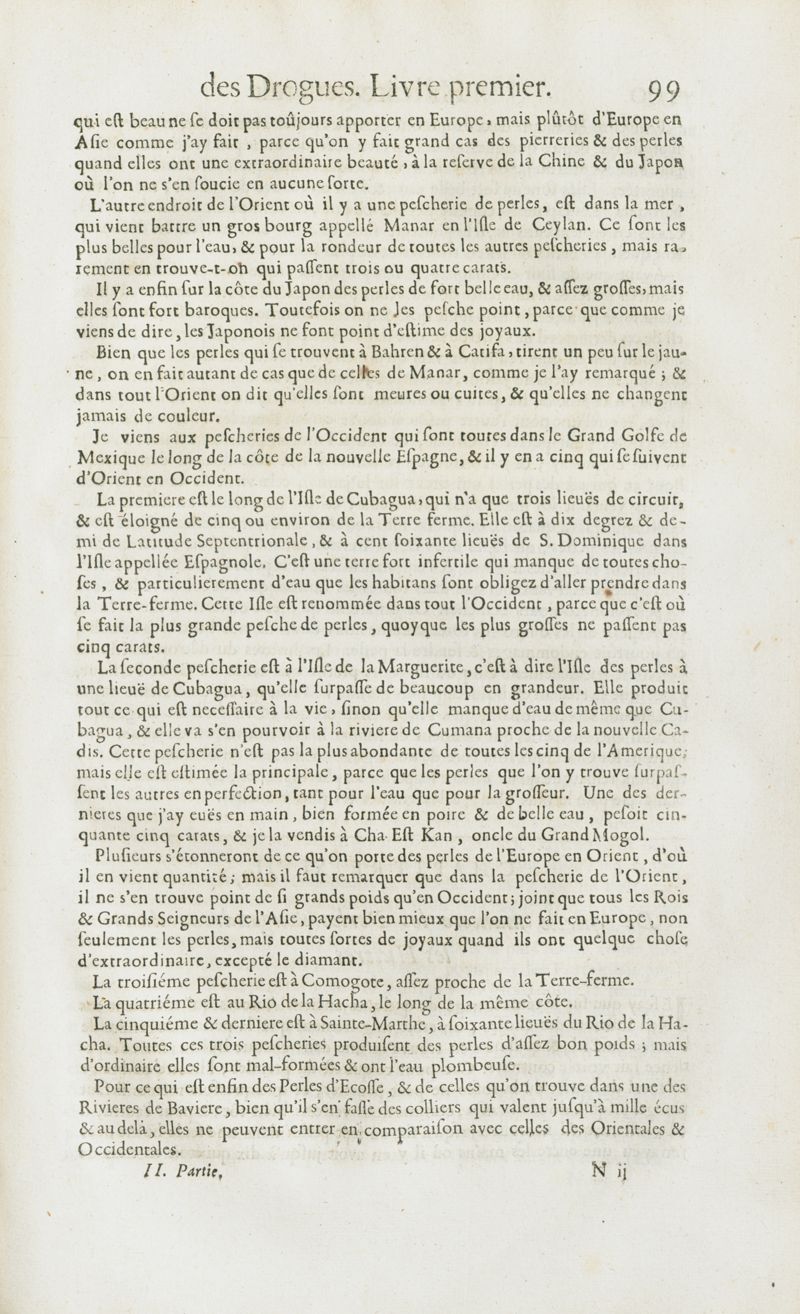 des Drogues. Livre premier. 99
qui eſt beau ne ſe doit pas toûjours apporter en Europe, mais plûtôt d'Europe en
Aſie comme j'ay fait , parce qu'on y fait grand cas des pierreries & des perles
quand elles ont une extraordinaire beauté , à la reſerve de la Chine & du Japon
où l'on ne s'en ſoucie en aucune ſorte.
L'autre endroit de l'Orient où il y a une peſcherie de perles, eſt dans la mer ,
qui vient battre un gros bourg appellé Manar en l'Iſle de Ceylan. Ce ſont les
plus belles pour l'eau, & pour la rondeur de toutes les autres peſcheries , mais ra-
rement en trouve-t-on qui paſſent trois ou quatre carats.
Il y a enfin ſur la côte du Japon des perles de fort belle eau, & aſſez groſſes, mais
elles ſont fort baroques. Toutefois on ne les peſche point , parce que comme je
viens de dire , les Japonois ne font point d'eſtime des joyaux.
Bien que les perles qui ſe trouvent à Bahren & à Catifa , tirent un peu ſur le jau-
ne , on en fait autant de cas que de celles de Manar, comme je l'ay remarqué ; &
dans tout l'Orient on dit qu'elles ſont meures ou cuites, & qu'elles ne changent
jamais de couleur.
Je viens aux peſcheries de l'Occident qui ſont toutes dans le Grand Golfe de
Mexique le long de la côte de la nouvelle Eſpagne, & il y en a cinq qui ſe ſuivent
d'Orient en Occident.
La premiere eſt le long de l'Iſle de Cubagua, qui n'a que trois lieuës de circuit,
& eſt éloigné de cinq ou environ de la Terre ferme. Elle eſt à dix degrez & de-
mi de Latitude Septentrionale , & à cent ſoixante lieuës de S. Dominique dans
l'Iſle appellée Eſpagnole. C'eſt une terre fort infertile qui manque de toutes cho-
ſes , & particulierement d'eau que les habitans ſont obligez d'aller prendre dans
la Terre-ferme. Cette Iſle eſt renommée dans tout l'Occident , parce que c'eſt où
ſe fait la plus grande peſche de perles , quoyque les plus groſſes ne paſſent pas
cinq carats.
La ſeconde peſcherie eſt à l'Iſle de la Marguerite , c'eſt à dire l'Iſle des perles à
une lieuë de Cubagua, qu'elle ſurpaſſe de beaucoup en grandeur. Elle produit
tout ce qui eſt neceſſaire à la vie , ſinon qu'elle manque d'eau de même que Cu-
bagua , & elle va s'en pourvoir à la riviere de Cumana proche de la nouvelle Ca-
dis. Cette peſcherie n'eſt pas la plus abondante de toutes les cinq de l'Amerique;
mais elle eſt eſtimée la principale, parce que les perles que l'on y trouve ſurpaſ-
ſent les autres en perfection, tant pour l'eau que pour la groſſeur. Une des der-
nieres que j'ay euës en main , bien formée en poire & de belle eau, peſoit cin-
quante cinq carats, & je la vendis à Cha Eſt Kan , oncle du Grand Mogol.
Pluſieurs s'étonneront de ce qu'on porte des perles de l'Europe en Orient , d'où
il en vient quantité ; mais il faut remarquer que dans la peſcherie de l'Orient,
il ne s'en trouve point de ſi grands poids qu'en Occident; joint que tous les Rois
& Grands Seigneurs de l'Aſie, payent bien mieux que l'on ne fait en Europe , non
ſeulement les perles, mais toutes ſortes de joyaux quand ils ont quelque choſe
d'extraordinaire, excepté le diamant.
La troiſiéme peſcherie eſt à Comogote, aſſez proche de la Terre-ferme.
La quatriéme eſt au Rio de la Hacha, le long de la même côte.
La cinquiéme & derniere eſt à Sainte-Marthe, à ſoixante lieuës du Rio de la Ha-
cha. Toutes ces trois peſcheries produiſent des perles d'aſſez bon poids ; mais
d'ordinaire elles ſont mal-formées & ont l'eau plombeuſe.
Pour ce qui eſt enfin des Perles d'Ecoſſe , & de celles qu'on trouve dans une des
Rivieres de Baviere, bien qu'il s'en faſſe des colliers qui valent juſqu'à mille écus
& au delà, elles ne peuvent entrer en comparaiſon avec celles des Orientales &
Occidentales.
II. Partie, N ij